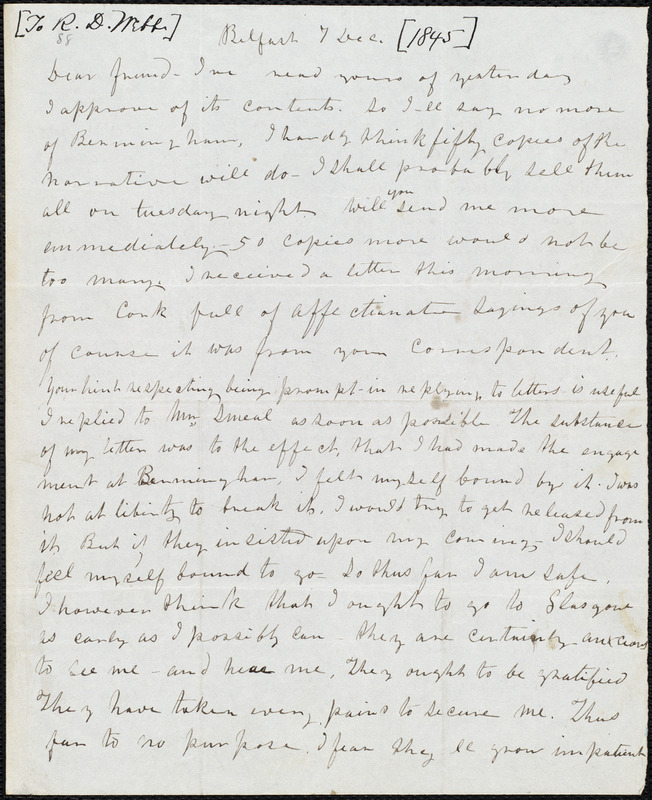 [To R. D. Webb.]
88
Belfast 7 Dec. [1845]
Dear friend - I've read yours of yesterday
I approve of its contents. So I'll say no more
of Benmingham, I hardly think fifty copies of the
narrative will do - I shall probably sell them
all on tuesday night Will you send me more
emmediately - 50 copies more would not be
too many. I received a letter this morning
from Cork full of affectionate sayings of you
of course it was from your correspondent.
Your hint respecting being prompt - in replying to letters is useful
I replied to Mr Smeal as soon as possible. The substance
of my letter was to the effect, that I had made the engage
ment at Benmingham, I felt myself bound by it. I was
not at liberty to break it, I would try to get released from
it. But if they insisted upon my coming - I should
feel myself bound to go - So thus far I am safe.
I however think that I ought to go to Glasgow
as early as I possibly can - they are certainly anxious
to see me - and hear me, They ought to be gratified
They have taken every pains to secure me. Thus
far to no purpose. I fear they'll grow impatient